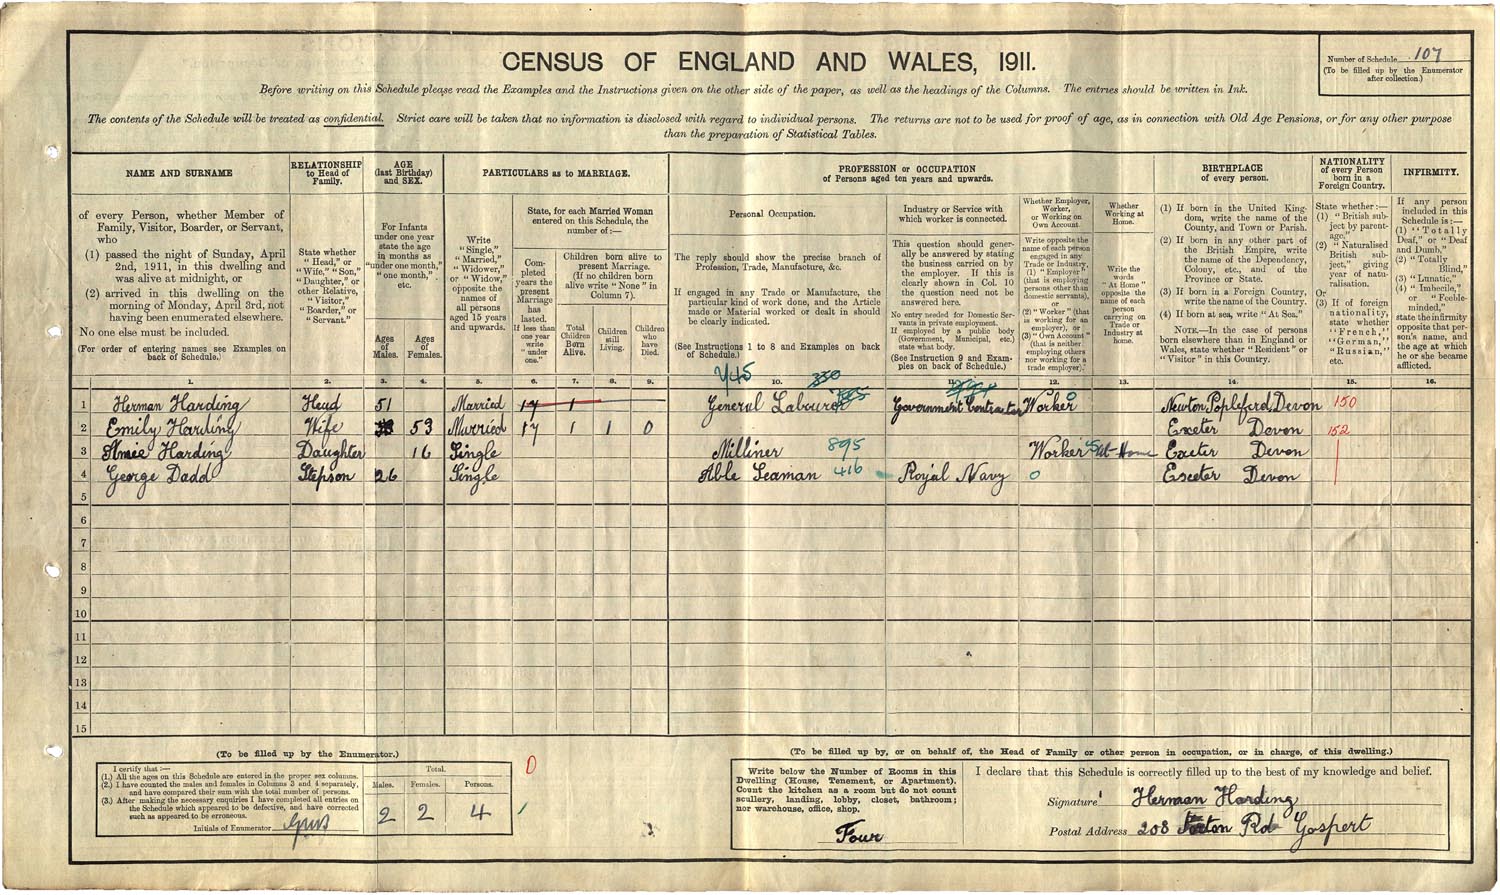 CENSUS OF ENGLAND AND WALES, 1911.
Number of Schedule 107
(To be filled up by the Enumerator
after collection.)
Before writing on this Schedule please read the Examples and the Instructions given on the other side of the paper, as well as the headings of the Columns. The entries should be written in Ink.
The contents of the Schedule will be treated as confidential. Strict care will be taken that no information is disclosed with regard to individual persons. The returns are not to be used for proof of age, as in connection with Old Age Pensions, or for any other purpose
than the preparation of Statistical Tables.
NAME AND SURNAME
of every Person, whether Member of
Family, Visitor, Boarder, or Servant,
who
(1) passed the night of Sunday, April
2nd, 1911, in this dwelling and
was alive at midnight, or
(2) arrived in this dwelling on the
morning of Monday, April 3rd, not
having been enumerated elsewhere.
No one else must be included.
(For order of entering names see Examples on
back of Schedule.)
RELATIONSHIP
to Head of
Family.
State whether
"Head," or
"Wife," "Son,"
"Daughter," or
other Relative,
"Visitor,"
"Boarder," or
"Servant."
AGE
(last Birthday)
and SEX.
For Infants
under one year
state the age
in months as
"under one month,"
"one month,"
etc.
Ages
of
Males.
Ages
of
Females.
PARTICULARS as to MARRIAGE.
Write
"Single,"
"Married,"
"Widower,"
or "Widow,"
opposite the
names of
all persons
aged 15 years
and upwards.
State, for each Married Woman
entered on this Schedule, the
number of:—
Com-
pleted
years the
present
Marriage
has
lasted.
If less than
one year
write
"under
one."
Children born alive to
present Marriage.
(If no children born
alive write "None" in
Column 7).
Total
Children
Born
Alive.
Children
still
Living.
Children
who
have
Died.
PROFESSION or OCCUPATION
of Persons aged ten years and upwards.
Personal Occupation.
The reply should show the precise branch of
Profession, Trade, Manufacture, &c.
If engaged in any Trade or Manufacture, the
particular kind of work done, and the Article
made or Material worked or dealt in should
be clearly indicated.
(See Instructions 1 to 8 and Examples on back
of Schedule.)
Industry or Service with
which worker is connected.
This question should gener-
ally be answered by stating
the business carried on by
the employer. If this is
clearly shown in Col. 10
the question need not be
answered here.
No entry needed for Domestic Ser-
vants in private employment.
If employed by a public body
(Government, Municipal, etc.)
state what body.
(See Instruction 9 and Exam-
ples on back of Schedule.)
Whether Employer,
Worker,
or Working on
Own Account.
Write opposite the
name of each person
engaged in any
Trade or Industry,
(1) "Employer"
(that is employing
persons other than
domestic servants),
or
(2) "Worker" (that
is working for an
employer), or
(3) "Own Account"
(that is neither
employing others
nor working for a
trade employer).
Whether
Working at
Home.
Write the
words
"At Home"
opposite the
name of each
person
carrying on
Trade or
Industry at
home.
BIRTHPLACE
of every person.
(1) If born in the United King-
dom, write the name of the
County, and Town or Parish.
(2) If born in any other part of
the British Empire, write
the name of the Dependency,
Colony, etc., and of the
Province or State.
(3) If born in a Foreign Country,
write the name of the Country.
(4) If born at sea, write "At Sea."
NOTE.—In the case of persons
born elsewhere than in England or
Wales, state whether "Resident" or
"Visitor" in this Country.
NATIONALITY
of every Person
born in a
Foreign Country.
State whether:—
(1) "British sub-
ject by parent-
age,"
(2) "Naturalised
British sub-
ject," giving
year of natu-
ralisation.
Or
(3) If of foreign
nationality,
state whether
"French,"
"German,"
"Russian,"
etc.
INFIRMITY.
If any person
included in this
Schedule is:—
(1) "Totally
Deaf," or "Deaf
and Dumb,"
(2) "Totally
Blind,"
(3) "Lunatic,"
(4) "Imbecile,"
or "Feeble-
minded,"
state the infirmity
opposite that per-
son's name, and
the age at which
he or she became
afflicted.
1. 2. 3. 4. 5. 6. 7. 8. 9. 10. 11. 12. 13. 14. 15. 16.
1 Herman Harding Head 51 Married 17 1 General Labourer Government Contractor Worker Newton Popleford, Devon 150
2 Emily Harding Wife 53 Married 17 1 1 0 Exeter Devon 152
3 Amie Harding Daughter 16 Single Milliner 895 Worker At Home Exeter Devon
4 George Dadd Stepson 26 Single Able Seaman 416 Royal Navy 0 Exeter Devon
5
6
7
8
9
10
11
12
13
14
15
(To be filled up by the Enumerator.)
I certify that:—
(1.) All the ages on this Schedule are entered in the proper sex columns.
(2.) I have counted the males and females in Columns 3 and 4 separately,
and have compared their sum with the total number of persons.
(3.) After making the necessary enquiries I have completed all entries on
the Schedule which appeared to be defective, and have corrected
such as appeared to be erroneous.
Initials of Enumerator
Total.
Males. Females. Persons.
2 2 4
0
(To be filled up by, or on behalf of, the Head of Family or other person in occupation, or in charge, of this dwelling.)
Write below the Number of Rooms in this
Dwelling (House, Tenement, or Apartment).
Count the kitchen as a room but do not count
scullery, landing, lobby, closet, bathroom;
nor warehouse, office, shop.
Four
I declare that this Schedule is correctly filled up to the best of my knowledge and belief.
Signature Herman Harding
Postal Address 208 Forton Rd Gosport